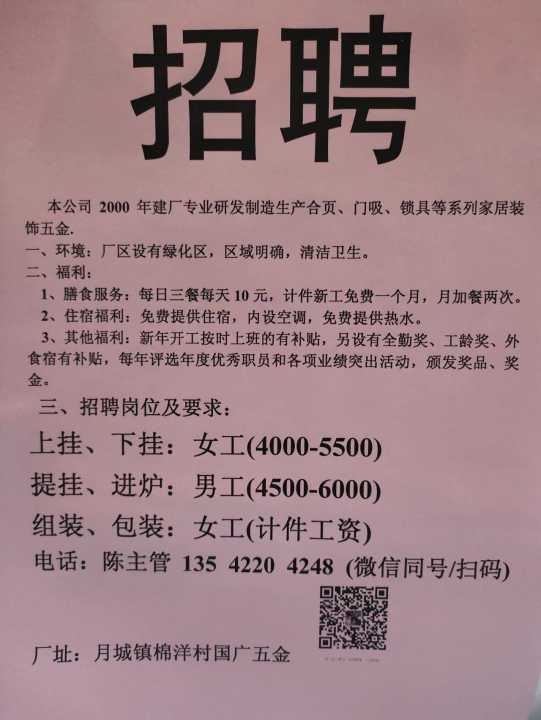 招聘
本公司 2000 年建厂专业研发制造生产合页、门吸、锁具等系列家居装
饰五金.
一、环境：厂区设有绿化区，区域明确，清洁卫生。
二、福利：
1、膳食服务：每日三餐每天 10 元，计件新工免费一个月，月加餐两次。
2、住宿福利：免费提供住宿，内设空调，免费提供热水。
3、其他福利：新年开工按时上班的有补贴，另设有全勤奖、工龄奖、外
食宿有补贴，每年评选年度优秀职员和各项业绩突出活动，颁发奖品、奖
金。
三、招聘岗位及要求：
上挂、下挂：女工(4000-5500)
提挂、进炉：男工(4500-6000)
组装、包装：女工(计件工资)
电话：陈主管 135 4220 4248 (微信同号/扫码)
厂址：月城镇棉洋村国广五金